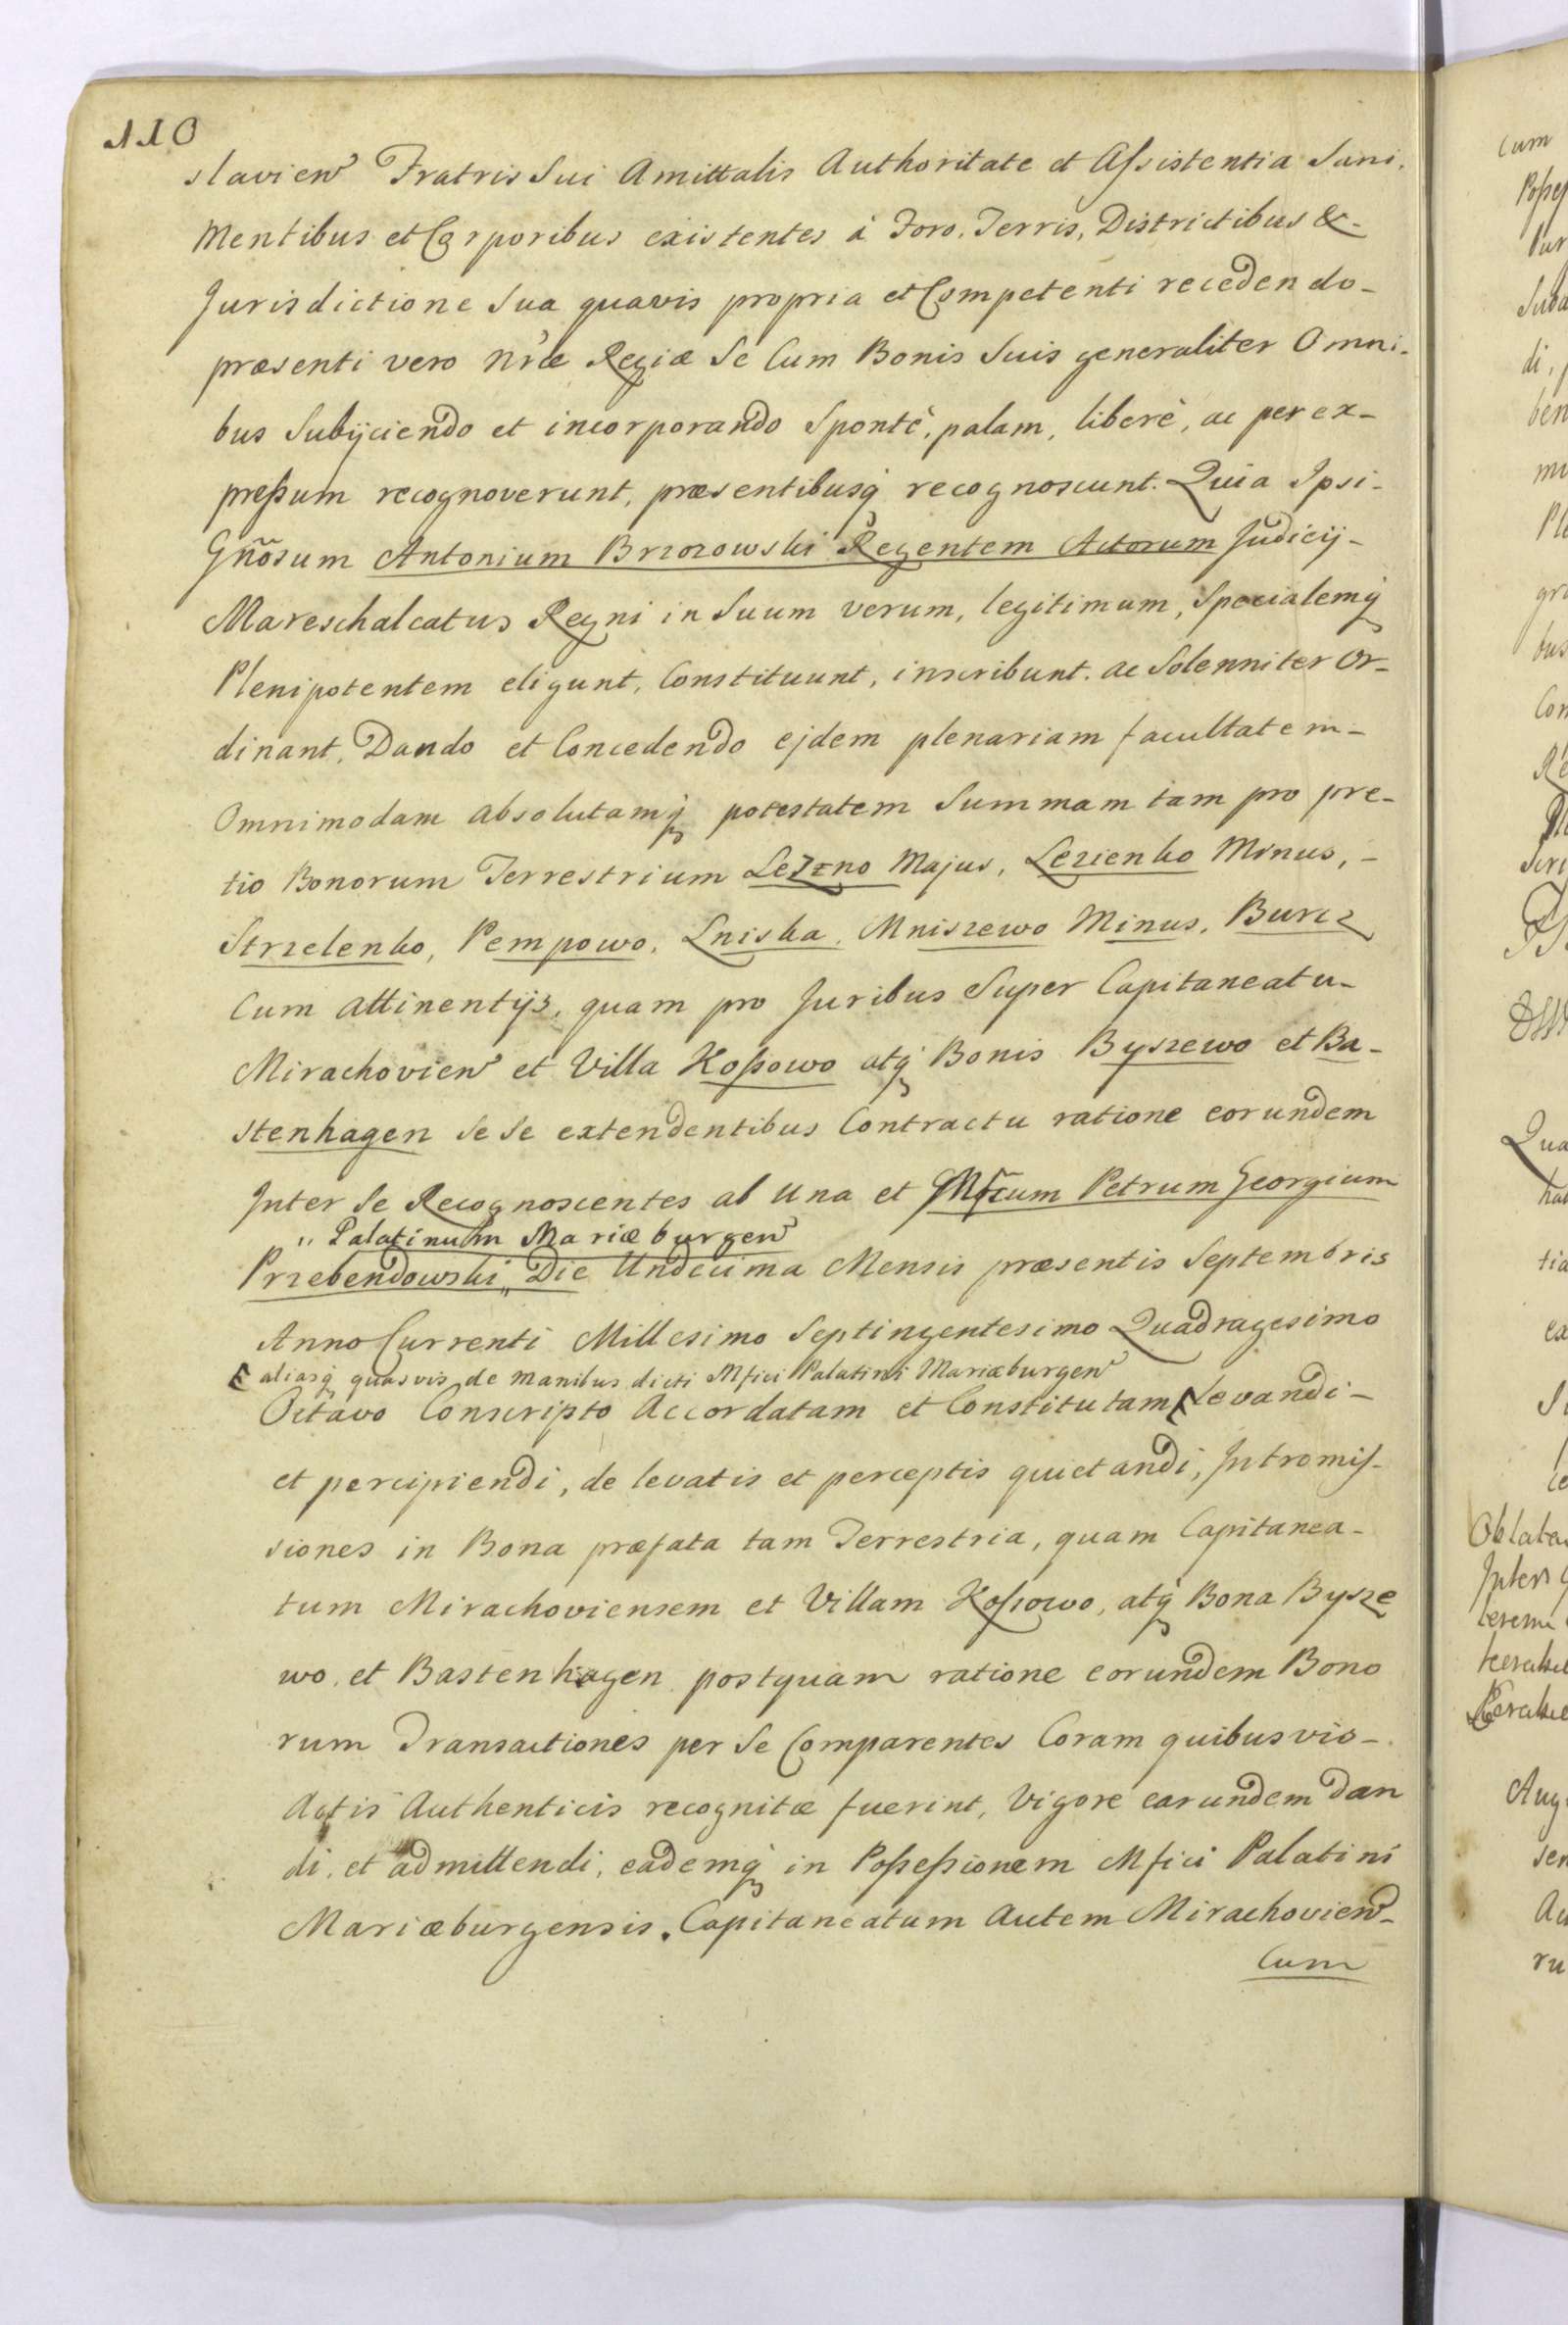 110
slavien Fratris Sui Amittalis Authoritate et Assistentia Sani
Mentibus et Corporibus existentes à Foro, Terris, Districtibus &
Jurisdictione Sua quavis propria et Competenti recedendo-
præsenti vero nræ Regiæ Se Cum Bonis Suis generaliter Omni-
bus Subijciendo et incorporando Spontè, palam, liberè, ac per ex-
preßum recognoverunt, præsentibusq recognoscunt. Quia Ipsi-
Gñosum Antonium Brzozowski Regentem Actorum Judicij-
Mareschalcatus Regni in Suum verum, legitimum, Specialemq
Plenipotentem eligunt, Constituunt, inscribunt. ac Solenniter Or-
dinant, Dando et Concedendo ejdem plenariam facultatem-
Omnimodam absolutamq potestatem Summam tam pro pre-
tio Bonorum Terrestrium Lezno Majus, Lezienko Minus,-
Strzelenko, Pempowo, Lniska, Mniszewo Minus, Burcz
Cum attinentijs, quam pro Juribus Super Capitaneatu-
Mirachovien et Villa Koßowo atq Bonis Byszewo et Ba-
stenhagen Se Se extendentibus Contractu ratione eorundem
Inter Se Recognoscentes ab Una et Mfcum Petrum Georgium
" Palatinum Mariæburgen
Przebendowski,, Die Undecima Mensis præsentis Septembris
Anno Currenti Millesimo Septingentesimo Quadragesimo
aliasq quasvis de manibus dicti Mfici Palatini Mariæburgen
Octavo Conscripto Accordatam et Constitutam Levandi-
et percipiendi, de levatis et perceptis quietandi, Intromis-
siones in Bona præfata tam Terrestria, quam Capitanea-
tum Mirachoviensem et Villam Kossowo, atq Bona Bysze
wo, et Bastenhagen postquam ratione eorundem Bono
rum Transactiones per Se Comparentes Coram quibusvis-
Actis Authenticis recognitæ fuerint, Vigore earundem Dan
di, et admittendi, eademq in Poßeßionem Mfici Palatini
Mariæburgensis. Capitaneatum Autem Mirachovien-
Cum